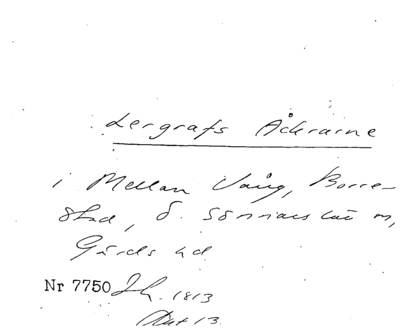 Lergrafs Åkrarne
i Mellan Vång, Borre-
stad, Ö. Sönnarslöv sn,
Gärds hd
Nr 7750 Ih. 1813
Akt 13.